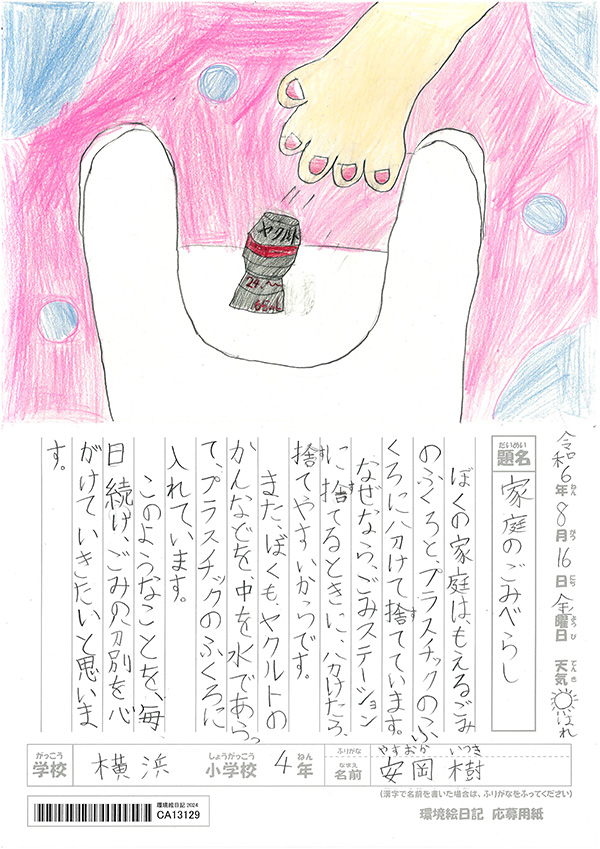 ヤクルト
令和6年8月16日金曜日 天気 はれ
ねん
がつ
にち
ようび
てんき
だいめい
題名
家庭のごみべらし
ぼくの家庭は、もえるごみ
のふくろと、プラスチックのふ
くろに分けて捨てています。
なぜなら、ごみステーション
に捨てるときに、分けたら、
捨てやすいからです。
また、ぼくも、ヤクルトの
かんなどを、中を水であらっ
て、プラスチックのふくろに
入れています。
このようなことを、毎
日続け、ごみの分別を心
がけていきたいと思いま
す。
がっこう
学校
横浜
しょうがっこう
小学校
4年
ねん
ふりがな
やすおか いつき
なまえ
名前
安岡 樹
(漢字で名前を書いた場合は、ふりがなをふってください)
環境絵日記2024
CA13129
環境絵日記 応募用紙